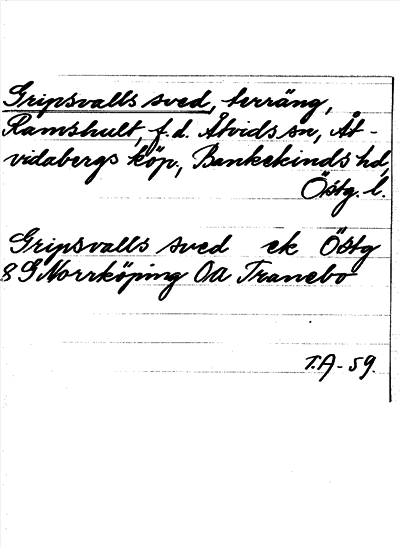 Gripsvalls sved, terräng,
Ramshult, f.d. Åtvids sn, Åt-
vidabergs köp., Bankekinds hd,
Östg. l.
Gripsvalls sved ek Östg
8 G Norrköping Öa Tranebo
T.A - 59.